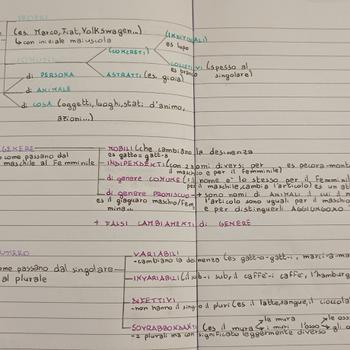 PROPRI
(es. Marco, Fiat, Volkswagen...)
↳ con iniziale maiuscola
(INDIVIDUALI)
es lupo
CONCRETI
COMUNI
COLLETTIVI (spesso al singolare)
es branco
ASTRATTI (es. gioia)
di PERSONA
di ANIMALE
di COSA (oggetti, luoghi, stati d'animo,
azioni...)
GENERE
come passano dal
maschile al femminile
MOBILI (che cambiano la desinenza
es gatto → gatt-a
INDIPENDENTI (con 2 nomi diversi per es pecora-mont
il maschio e per il femminile)
di genere COMUNE (il nome e' lo stesso per il femmin
per il maschile, cambia l'articolo) es un at
di genere PROMISCUO → sono nomi di ANIMALI il cui n
es il giaguaro maschio/fem
mina...
l'articolo sono uguali per il masch
e per distinguerli AGGIUNGO
+ FALSI CAMBIAMENTI di GENERE
NUMERO
come passano dal singolare
al plurale
VARIABILI
- cambiano la desinenza (es gatt-o → gatt-i,
INVARIABILI (il sub-i sub, il caffè-i caffè, l'hamburg
DIFETTIVI
- non hanno il sing o il pluri (es il latte, sangue, il
SOVRABBONDANTI (es il muro
la mura
i muri
l'osso
le oss
gli o
- 2 plurali ma con significato leggermente diverso